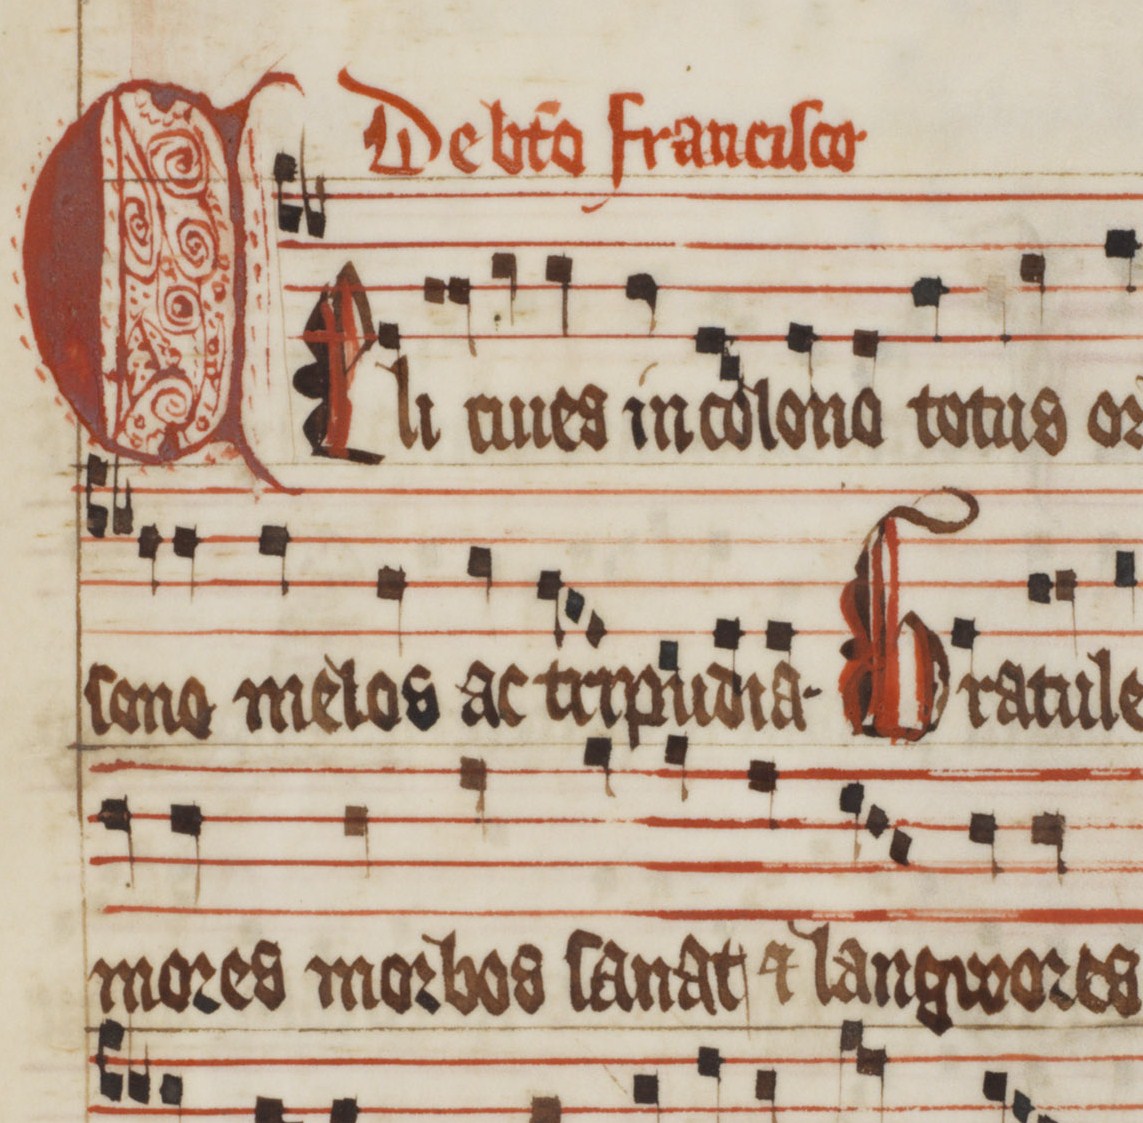 De bt̄o francisco
CEli ciues in colono totus or
sono melos ac tripudia· Gratule
mores morbos sanat ⁊ langwores